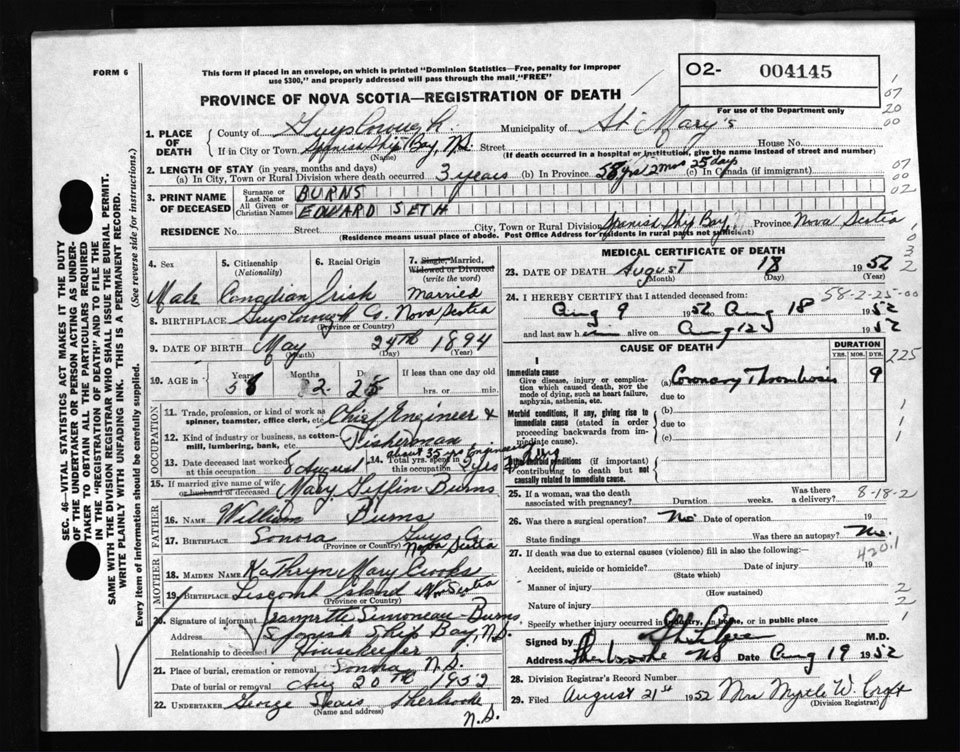 FORM 6
This form if placed in an envelope, on which is printed "Dominion Statistics—Free, penalty for improper
use $300," and properly addressed will pass through the mail "FREE"
O2- 004145
For use of the Department only
PROVINCE OF NOVA SCOTIA—REGISTRATION OF DEATH
1. PLACE OF DEATH
County of Guysborough Municipality of St Mary's
If in City or Town Spanish Ship Bay, N.S. Street House No.
(Name) (If death occurred in a hospital or institution, give the name instead of street and number)
2. LENGTH OF STAY (in years, months and days)
(a) In City, Town or Rural Division where death occurred 3 years (b) In Province 58 yrs 2 mos 25 days (c) In Canada (if immigrant)
3. PRINT NAME OF DECEASED
Surname or Last Name BURNS
All Given or Christian Names EDWARD SETH
RESIDENCE No. Street City, Town or Rural Division Spanish Ship Bay Province Nova Scotia
(Residence means usual place of abode. Post Office Address for residents in rural parts not sufficient)
4. Sex 5. Citizenship (Nationality) 6. Racial Origin 7. Single, Married, Widowed or Divorced (write the word)
Male Canadian Irish Married
8. BIRTHPLACE Guysborough Co. Nova Scotia
(Province or Country)
9. DATE OF BIRTH May 24th 1894
(Month) (Day) (Year)
10. AGE in Years Months Days If less than one day
58 2 25 hrs. or min.
OCCUPATION
11. Trade, profession, or kind of work as spinner, teamster, office clerk, etc. Chief Engineer &
12. Kind of industry or business, as cotton-mill, lumbering, bank, etc. Fisherman
13. Date deceased last worked at this occupation 8 August 14. Total yrs. spent in this occupation about 35 yrs Engineering 3 yrs Fishing
15. If married give name of wife or husband of deceased Mary Giffin Burns
FATHER
16. NAME William Burns
17. BIRTHPLACE Sonora Guys Co. Nova Scotia
(Province or Country)
MOTHER
18. MAIDEN NAME Kathryn Mary Crooks
19. BIRTHPLACE Liscomb Island Nova Scotia
(Province or Country)
20. Signature of informant Jeannette Simoneau-Burns
Address Spanish Ship Bay, N.S.
Relationship to deceased Housekeeper
21. Place of burial, cremation or removal Sonora N.S.
Date of burial or removal Aug 20th 1952
22. UNDERTAKER George Sears Sherbrooke N.S.
(Name and address)
MEDICAL CERTIFICATE OF DEATH
23. DATE OF DEATH August 18 1952
(Month) (Day) (Year)
24. I HEREBY CERTIFY that I attended deceased from:
Aug 9 1952 to Aug 18 1952
and last saw him alive on Aug 12 1952
58-2-25-00
CAUSE OF DEATH DURATION
YRS. MOS. DYS.
225
I
Immediate cause
Give disease, injury or complication which caused death, not the mode of dying, such as heart failure, asphyxia, asthenia, etc.
(a) Coronary Thrombosis 9
due to
Morbid conditions, if any, giving rise to immediate cause (stated in order proceeding backwards from immediate cause).
(b)
due to
(c)
II
Other morbid conditions (if important) contributing to death but not causally related to immediate cause.
25. If a woman, was the death associated with pregnancy? Duration weeks. Was there a delivery?
8-18-2
26. Was there a surgical operation? No Date of operation 19
State findings Was there an autopsy? No
420.1
27. If death was due to external causes (violence) fill in also the following:—
Accident, suicide or homicide? Date of injury 19
(State which)
Manner of injury
(How sustained)
Nature of injury
Specify whether injury occurred in industry, in home, or in public place
Signed by M.D.
Address Sherbrooke NS Date Aug 19 1952
28. Division Registrar's Record Number
29. Filed August 21st 1952 Mrs Myrtle W. Croft
(Division Registrar)
SEC. 46—VITAL STATISTICS ACT MAKES IT THE DUTY
OF THE UNDERTAKER OR PERSON ACTING AS UNDER-
TAKER TO OBTAIN ALL THE PARTICULARS REQUIRED
IN THE "REGISTRATION OF DEATH" AND TO FILE THE
SAME WITH THE DIVISION REGISTRAR WHO SHALL ISSUE THE BURIAL PERMIT.
WRITE PLAINLY WITH UNFADING INK. THIS IS A PERMANENT RECORD.
Every item of information should be carefully supplied. (See reverse side for instructions.)